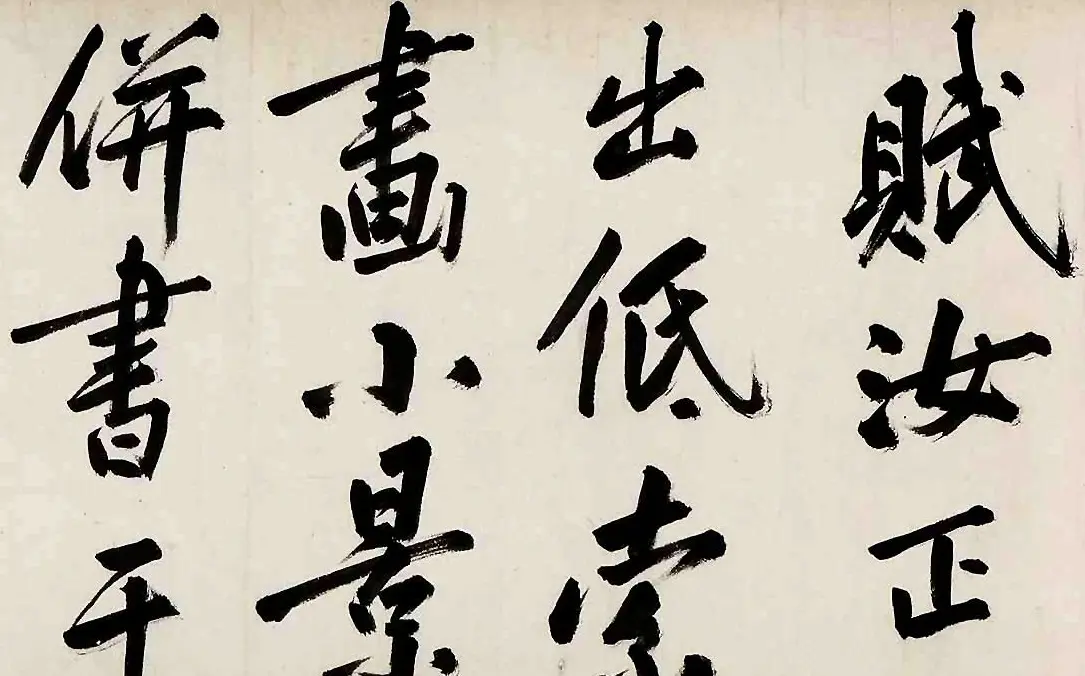 賦汝正
出低索
畫小景
併書于